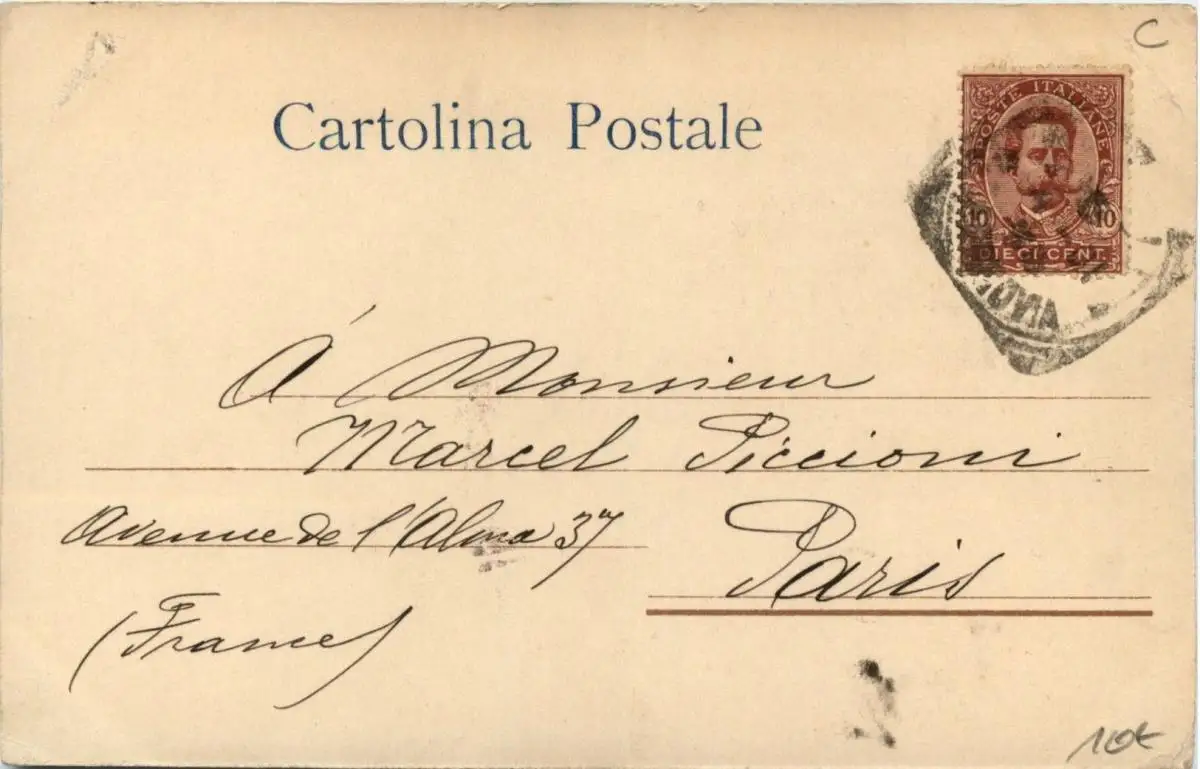 C
Cartolina Postale
POSTE ITALIANE
10 10
DIECI CENT.
À Monsieur
Marcel Piccioni
Avenue de l'Alma 37
Paris
(France)
10€